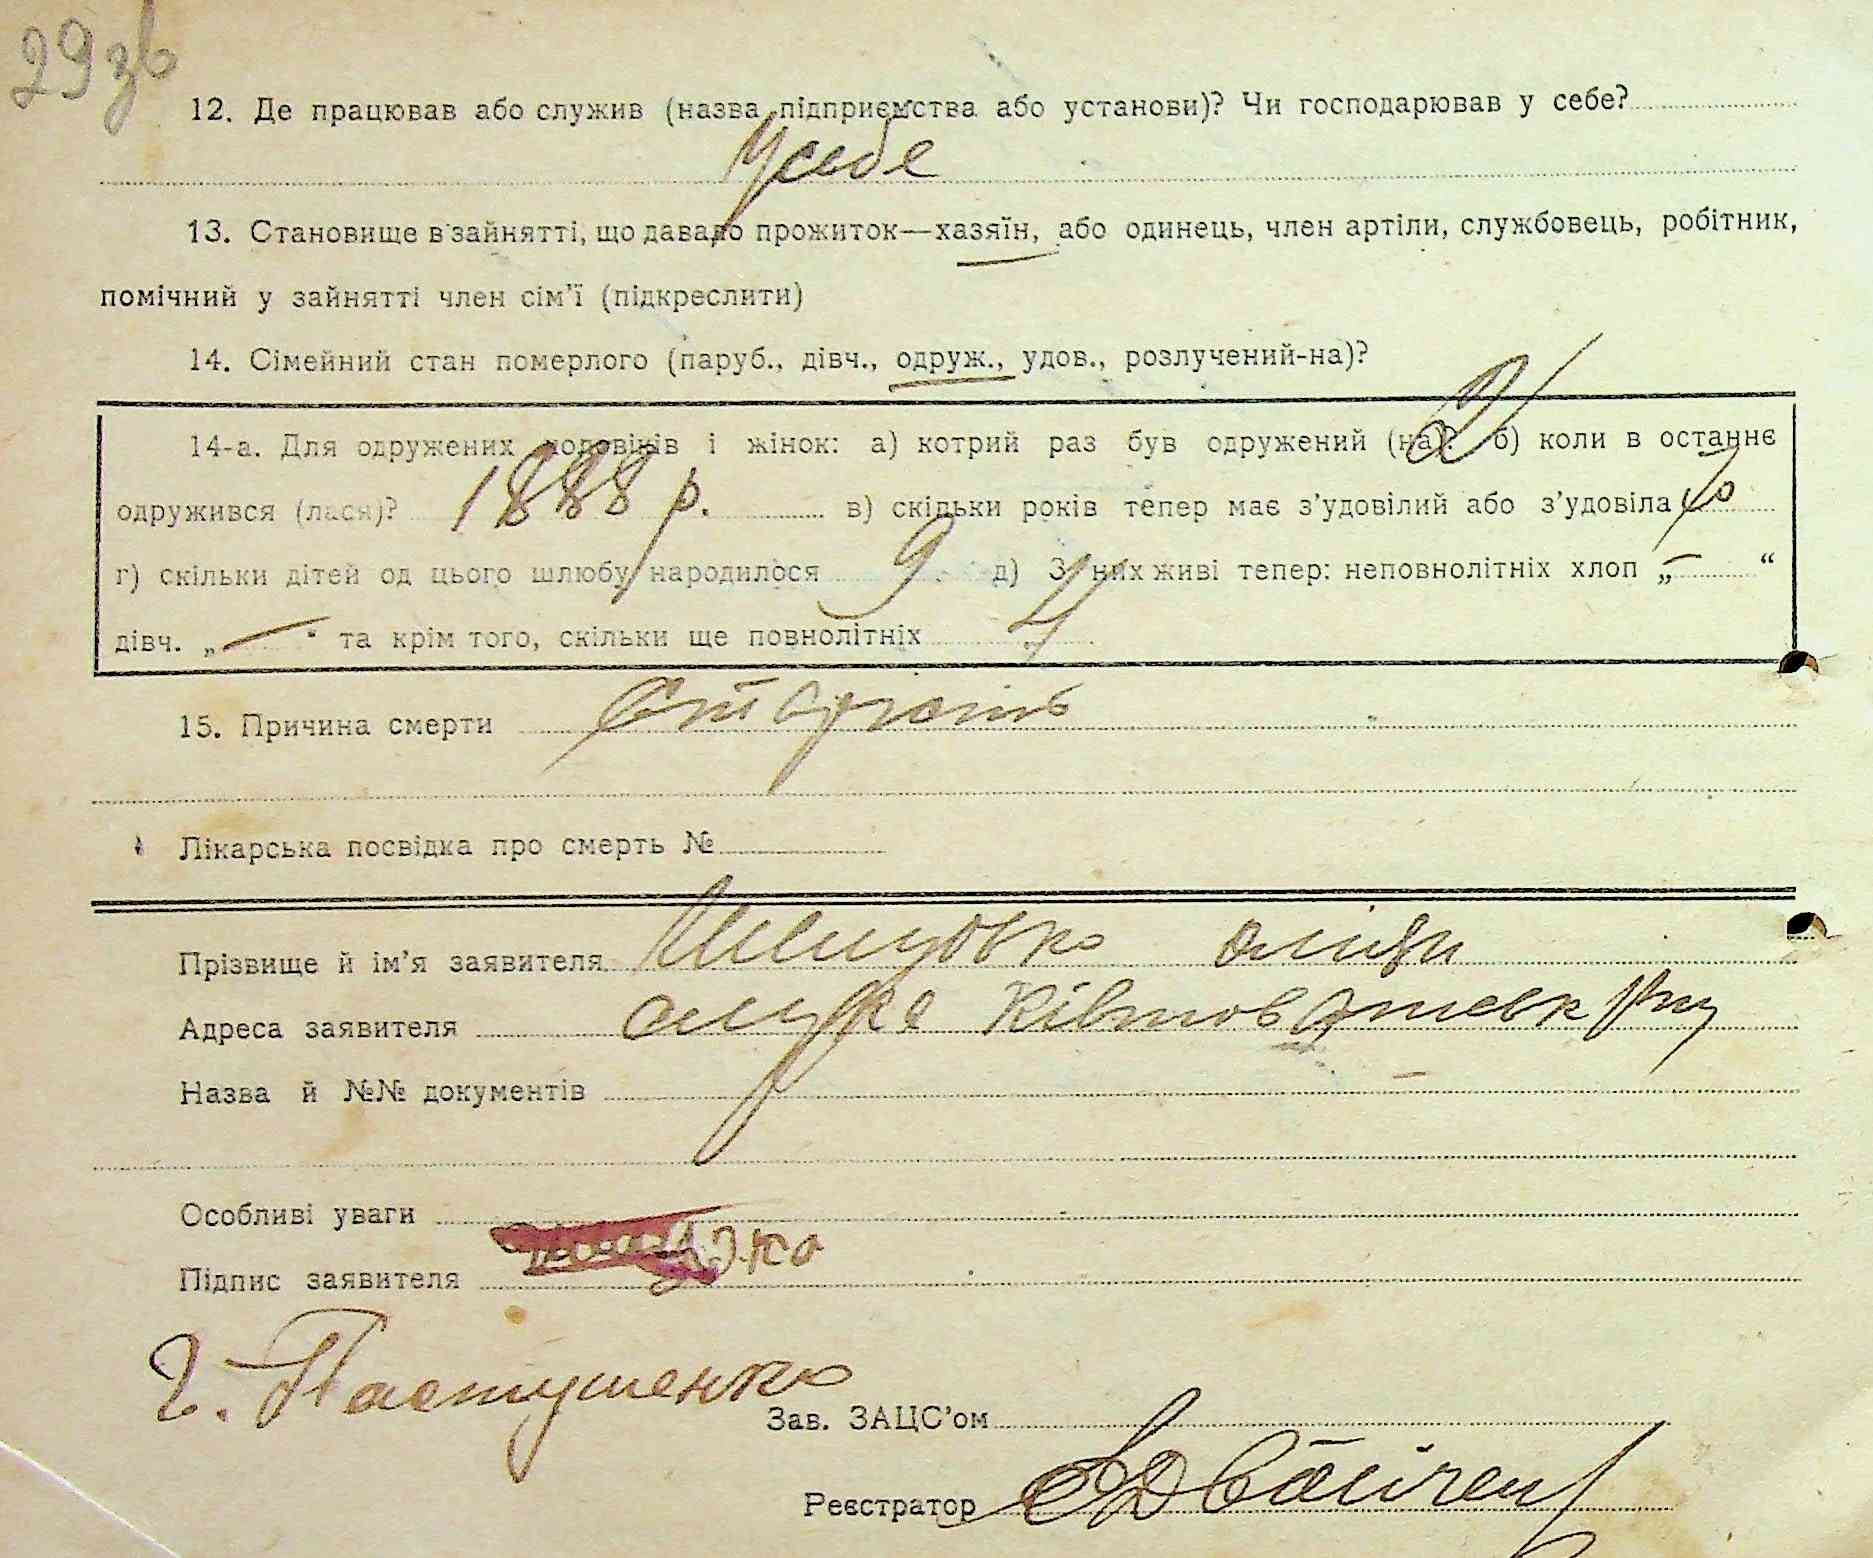 29 зв
12. Де працював або служив (назва підприємства або установи)? Чи господарював у себе?
У себе
13. Становище в зайнятті, що давало прожиток—хазяїн, або одинець, член артіли, службовець, робітник,
помічний у зайнятті член сім'ї (підкреслити)
14. Сімейний стан померлого (паруб., дівч., одруж., удов., розлучений-на)?
14-а. Для одружених чоловіків і жінок: а) котрий раз був одружений (на)? 2 б) коли в останнє
одружився (лася)? 1888 р. в) скільки років тепер має з'удовілий або з'удовіла
г) скільки дітей од цього шлюбу народилося 9 д) З них живі тепер: неповнолітніх хлоп „—“
дівч. „—“ та крім того, скільки ще повнолітніх 4
15. Причина смерти Старість
Лікарська посвідка про смерть №
Прізвище й ім'я заявителя
Адреса заявителя
Назва й №№ документів —
Особливі уваги
Підпис заявителя
Г. Пастушенко
Зав. ЗАЦС'ом
Реєстратор